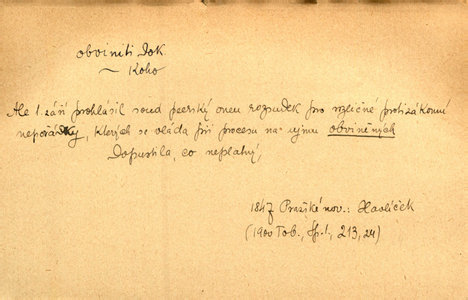 obviniti dok.
~ Koho
Ale 1. září prohlásil soud peerský onen rozsudek pro rozličné protizákonní
nepořádky, kterých se vláda při procesu na ujmu obviněných
dopustila, co neplatný,
1847 Pražské nov.: Havlíček
(1900 Tob., Sp. 1, 213, 24)